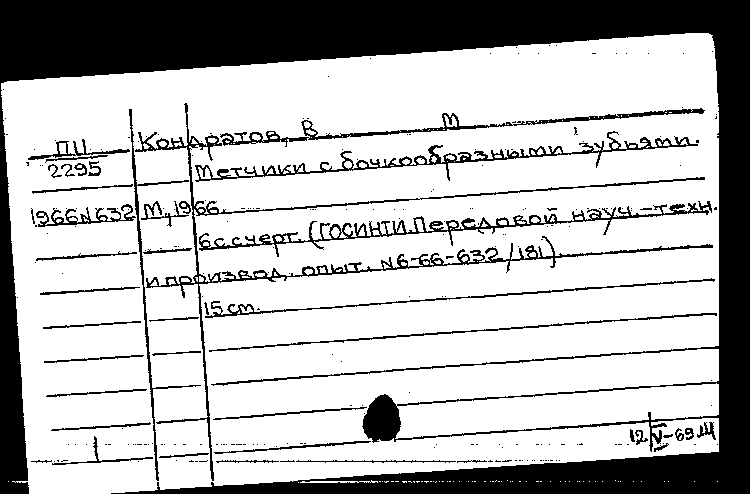 ПЦ
2295
1966N632
Кондратов, В М
Метчики с бочкообразными зубьями.
М., 1966.
6с счерт. (ГОСИНТИ. Передовой науч.-техн.
и производ. опыт. N6-66-632/181).
15 cm.
12/V-69